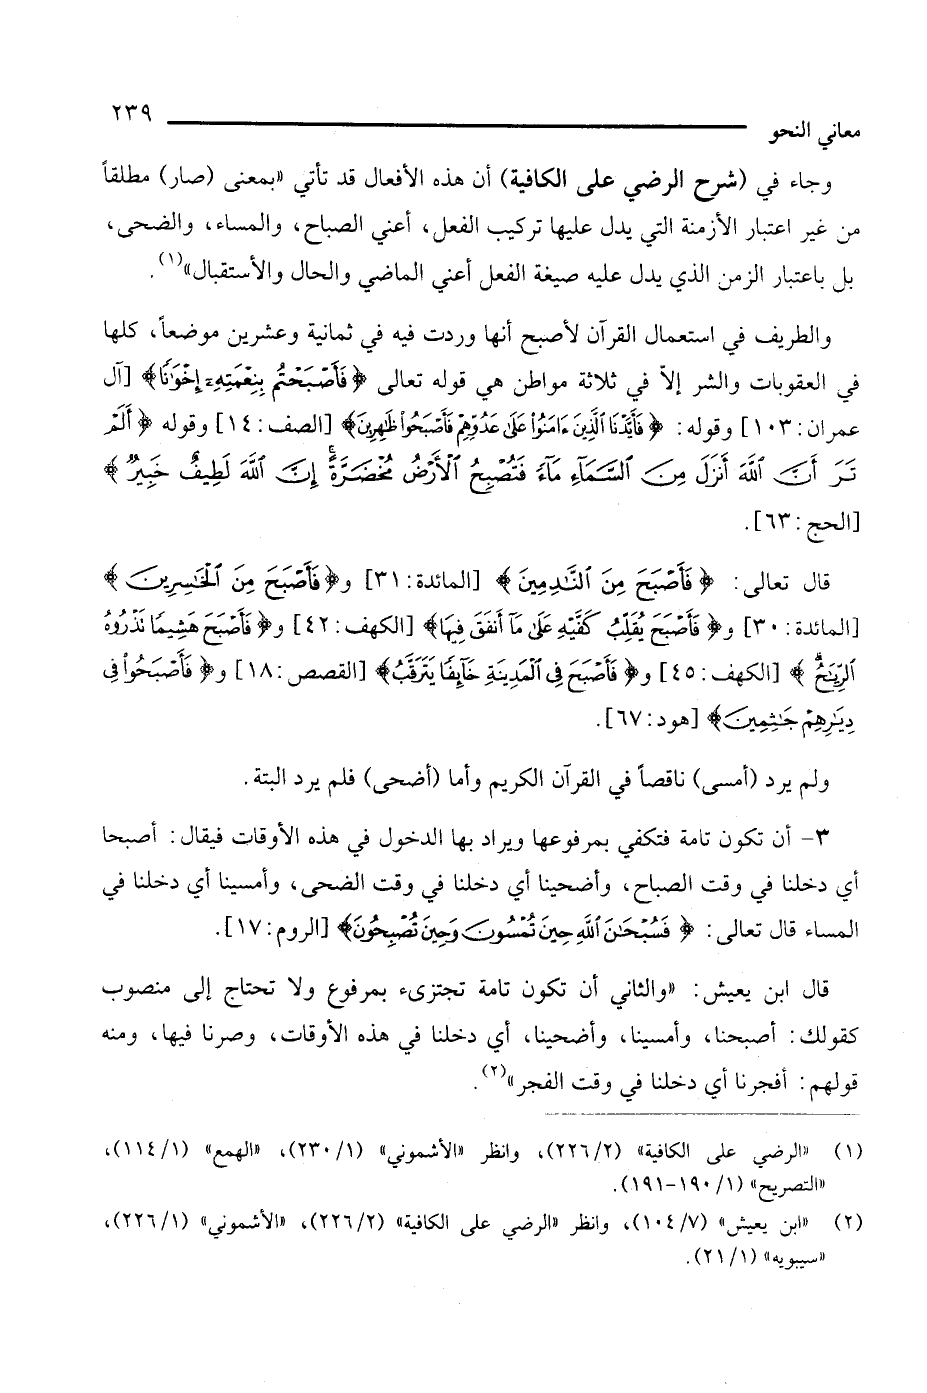 معاني النحو ٢٣٩
وجاء في (شرح الرضي على الكافية) أن هذه الأفعال قد تأتي «بمعنى (صار) مطلقاً
من غير اعتبار الأزمنة التي يدل عليها تركيب الفعل، أعني الصباح، والمساء، والضحى،
بل باعتبار الزمن الذي يدل عليه صيغة الفعل أعني الماضي والحال والأستقبال»(١).
والطريف في استعمال القرآن لأصبح أنها وردت فيه في ثمانية وعشرين موضعاً، كلها
في العقوبات والشر إلاّ في ثلاثة مواطن هي قوله تعالى ﴿فَأَصْبَحْتُم بِنِعْمَتِهِۦٓ إِخْوَٰنًا﴾ [آل
عمران: ١٠٣] وقوله: ﴿فَأَيَّدْنَا ٱلَّذِينَ ءَامَنُوا۟ عَلَىٰ عَدُوِّهِمْ فَأَصْبَحُوا۟ ظَٰهِرِينَ﴾ [الصف: ١٤] وقوله ﴿أَلَمْ
تَرَ أَنَّ ٱللَّهَ أَنزَلَ مِنَ ٱلسَّمَآءِ مَآءً فَتُصْبِحُ ٱلْأَرْضُ مُخْضَرَّةً ۗ إِنَّ ٱللَّهَ لَطِيفٌ خَبِيرٌ﴾
[الحج: ٦٣].
قال تعالى: ﴿فَأَصْبَحَ مِنَ ٱلنَّٰدِمِينَ﴾ [المائدة: ٣١] و﴿فَأَصْبَحَ مِنَ ٱلْخَٰسِرِينَ﴾
[المائدة: ٣٠] و﴿فَأَصْبَحَ يُقَلِّبُ كَفَّيْهِ عَلَىٰ مَآ أَنفَقَ فِيهَا﴾ [الكهف: ٤٢] و﴿فَأَصْبَحَ هَشِيمًا تَذْرُوهُ
ٱلرِّيَٰحُ﴾ [الكهف: ٤٥] و﴿فَأَصْبَحَ فِى ٱلْمَدِينَةِ خَآئِفًا يَتَرَقَّبُ﴾ [القصص: ١٨] و﴿فَأَصْبَحُوا۟ فِى
دِيَٰرِهِمْ جَٰثِمِينَ﴾ [هود: ٦٧].
ولم يرد (أمسى) ناقصاً في القرآن الكريم وأما (أضحى) فلم يرد البتة.
٣- أن تكون تامة فتكفي بمرفوعها ويراد بها الدخول في هذه الأوقات فيقال: أصبحا
أي دخلنا في وقت الصباح، وأضحينا أي دخلنا في وقت الضحى، وأمسينا أي دخلنا في
المساء قال تعالى: ﴿فَسُبْحَٰنَ ٱللَّهِ حِينَ تُمْسُونَ وَحِينَ تُصْبِحُونَ﴾ [الروم: ١٧].
قال ابن يعيش: «والثاني أن تكون تامة تجتزىء بمرفوع ولا تحتاج إلى منصوب
كقولك: أصبحنا، وأمسينا، وأضحينا، أي دخلنا في هذه الأوقات، وصرنا فيها، ومنه
قولهم: أفجرنا أي دخلنا في وقت الفجر»(٢).
(١) «الرضي على الكافية» (٢٢٦/٢)، وانظر «الأشموني» (٢٣٠/١)، «الهمع» (١١٤/١)،
«التصريح» (١٩٠/١-١٩١).
(٢) «ابن يعيش» (١٠٤/٧)، وانظر «الرضي على الكافية» (٢٢٦/٢)، «الأشموني» (٢٢٦/١)،
«سيبويه» (٢١/١).